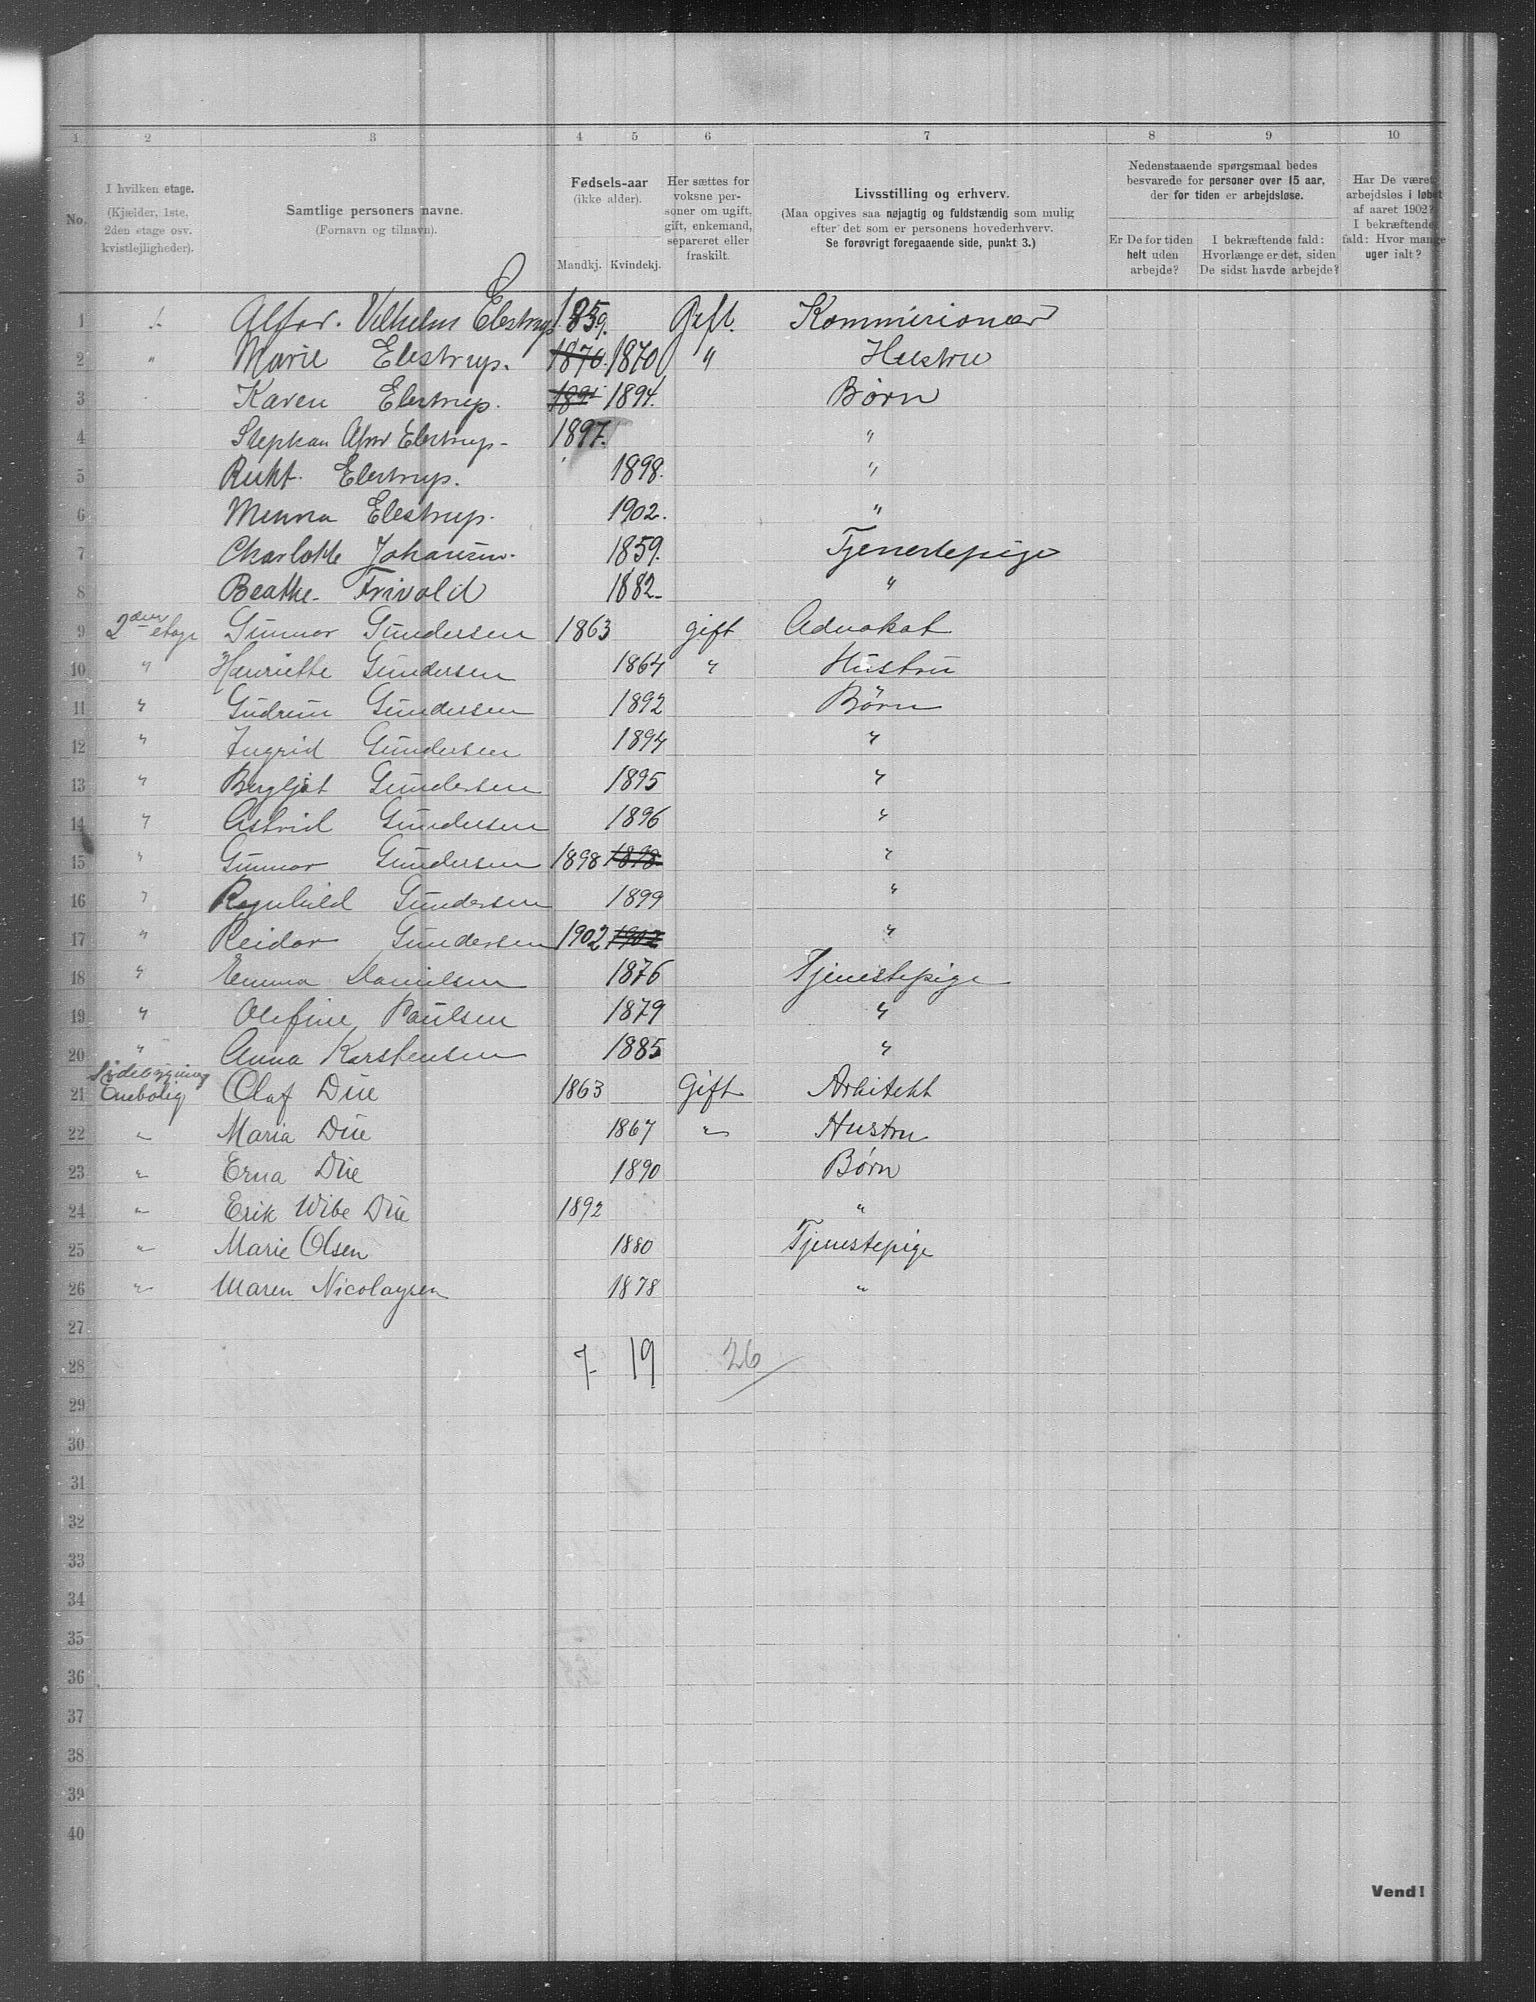 1 2 3 4 5 6 7 8 9 10
No.
I hvilken etage.
(Kjælder, 1ste,
2den etage osv.
kvistlejligheder).
Samtlige personers navne.
(Fornavn og tilnavn).
Fødsels-aar
(ikke alder).
Mandkj. Kvindekj.
Her sættes for
voksne per-
soner om ugift,
gift, enkemand,
separeret eller
fraskilt.
Livsstilling og erhverv.
(Maa opgives saa nøjagtig og fuldstændig som mulig
efter det som er personens hovederhverv.
Se forøvrigt foregaaende side, punkt 3.)
Nedenstaaende spørgsmaal bedes
besvarede for personer over 15 aar,
der for tiden er arbejdsløse.
Er De for tiden
helt uden
arbejde?
I bekræftende fald:
Hvorlænge er det, siden
De sidst havde arbejde?
Har De været
arbejdsløs i løbet
af aaret 1902?
I bekræftende
fald: Hvor mange
uger ialt?
1 Vilhelm Elestrup 1859. Gift. Kommisionær
2 " Marie Elestrup. 1870. 1870 " Hustru
3 Karen Elestrup. 1894. Børn
4 Stephan Elestrup. 1897. "
5 Elestrup. 1898. "
6 Minna Elestrup. 1902. "
7 Charlotte Johansen. 1859. Tjenestepige
8 Beathe. Frivold 1882. "
9 2den etage Gunnar Gundersen 1863 gift Advokat
10 " Henriette Gundersen 1864 " Hustru
11 " Gudrun Gundersen 1892 Børn
12 " Ingrid Gundersen 1894 "
13 " Bergljot Gundersen 1895 "
14 " Astrid Gundersen 1896 "
15 " Gunnar Gundersen 1898 1898 "
16 " Ragnhild Gundersen 1899 "
17 " Reidar Gundersen 1902 1902 "
18 " Emma Danielsen 1876 Tjenestepige
19 " Olefine Paulsen 1879 "
20 " Anna Karstensen 1885 "
Sidebygning
21 Enebolig Olaf Due 1863 Gift Arkitekt
22 " Maria Due 1867 " Hustru
23 " Erna Due 1890 Børn
24 " Erik Wibe Due 1892 "
25 " Marie Olsen 1880 Tjenestepige
26 " Maren Nicolaysen 1878 "
27
28 7 19 26
29
30
31
32
33
34
35
36
37
38
39
40
Vend!